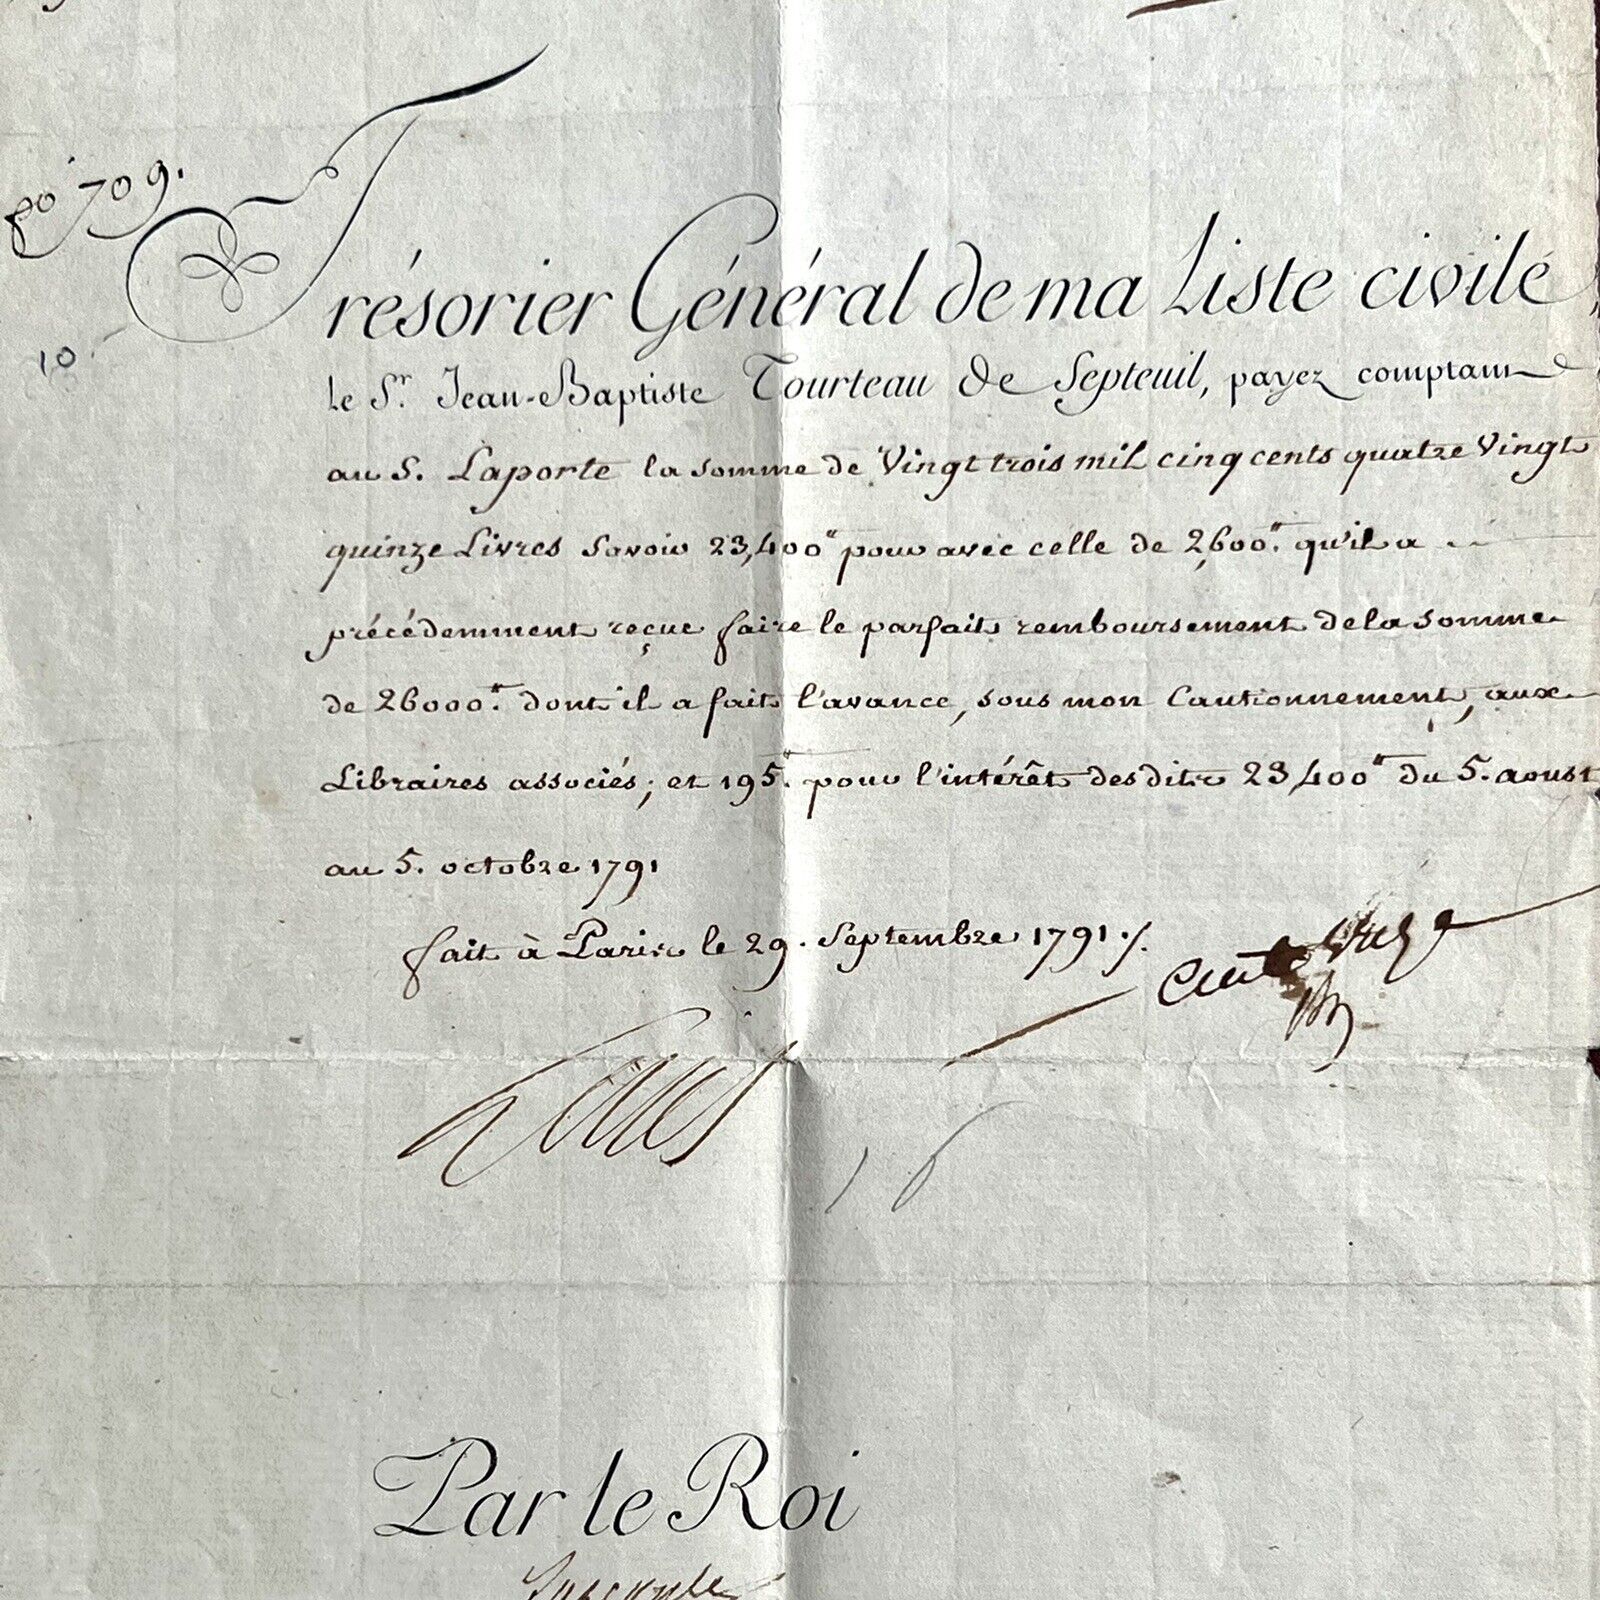 fo 709.
Trésorier Général de ma Liste civile
10.
le Sr. Jean-Baptiste Tourteau de Septeuil, payez comptant
au S. Laporte la somme de Vingt trois mil cinq cents quatre Vingt
quinze Livres Savoir 23,400# pour avec celle de 2,600#. qu'il a
précédemment reçue faire le parfait remboursement de la somme
de 26000#. dont il a fait l'avance, sous mon Cautionnement, aux
Libraires associés; et 195# pour l'intérêt des dits 23,400# du 5. aoust
au 5. octobre 1791
fait à Paris le 29. Septembre 1791./.
Louis
Par le Roi